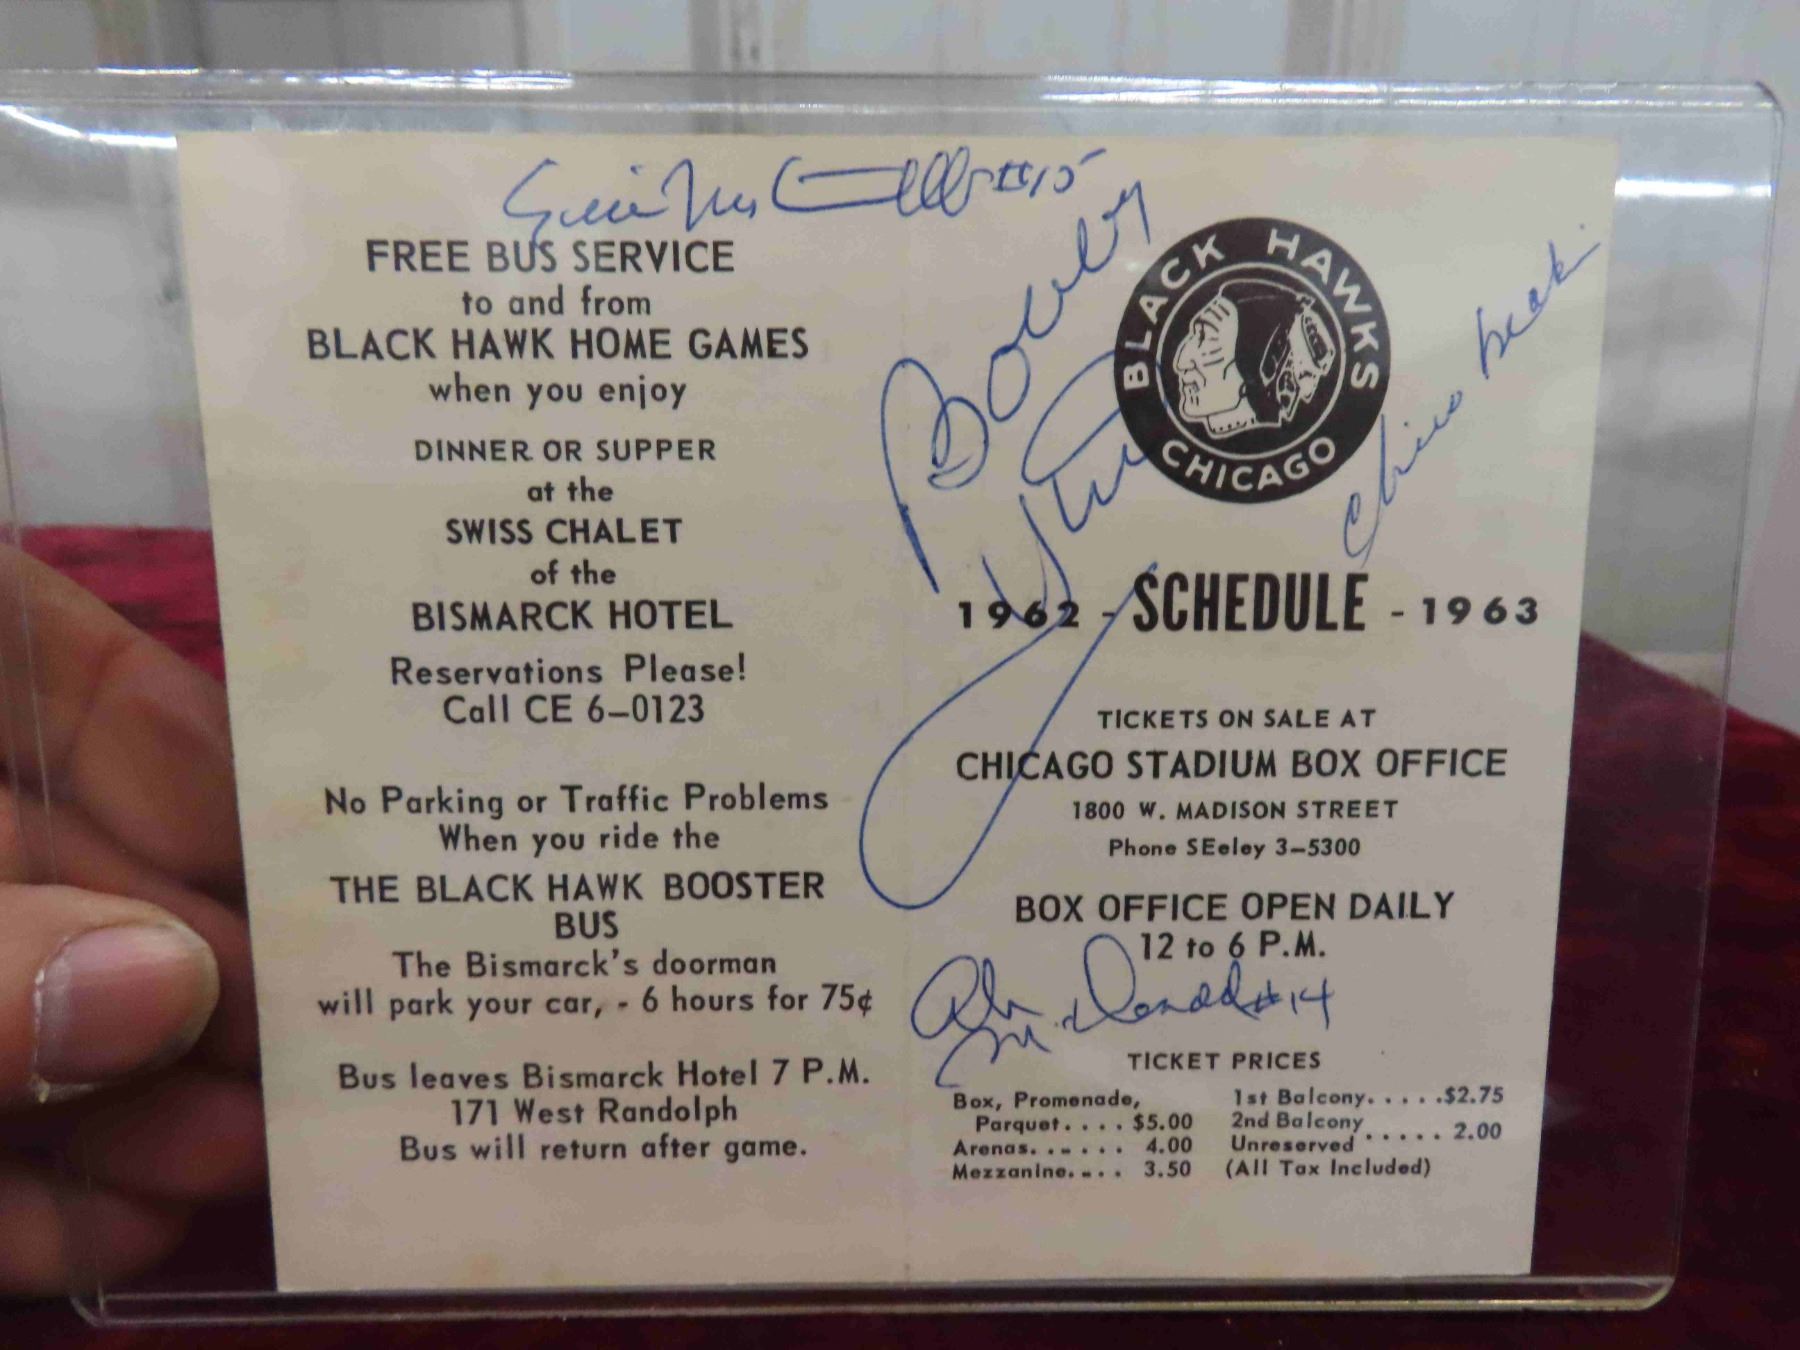 #15
FREE BUS SERVICE
to and from
BLACK HAWK HOME GAMES
when you enjoy
DINNER OR SUPPER
at the
SWISS CHALET
of the
BISMARCK HOTEL
Reservations Please!
Call CE 6-0123
No Parking or Traffic Problems
When you ride the
THE BLACK HAWK BOOSTER
BUS
The Bismarck's doorman
will park your car, - 6 hours for 75¢
Bus leaves Bismarck Hotel 7 P.M.
171 West Randolph
Bus will return after game.
Bobby
Hull
BLACK HAWKS
CHICAGO
1962 - SCHEDULE - 1963
TICKETS ON SALE AT
CHICAGO STADIUM BOX OFFICE
1800 W. MADISON STREET
Phone SEeley 3-5300
BOX OFFICE OPEN DAILY
12 to 6 P.M.
Ab
McDonald #14
TICKET PRICES
Box, Promenade,
Parquet.... $5.00
Arenas...... 4.00
Mezzanine.... 3.50
1st Balcony.....$2.75
2nd Balcony
Unreserved ..... 2.00
(All Tax Included)